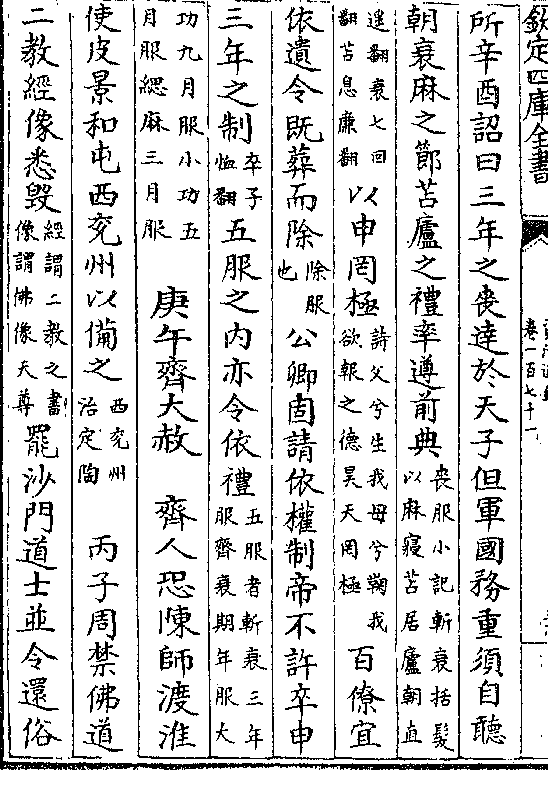 欽定四庫全書
卷一百七十一
所辛酉詔曰三年之喪達於天子但軍國務重須自聽
朝衰麻之節苫廬之禮率遵前典喪服小記斬衰括髮以麻寢苫居廬朝直
遥翻衰七回翻苫息廉翻以申罔極詩父兮生我母兮鞠我欲報之德昊天罔極百僚宜
依遺令既葬而除除服也公卿固請依權制帝不許卒申
三年之制卒子恤翻五服之内亦令依禮五服者斬衰三年服齊衰期年服大
功九月服小功五月服緦麻三月服 庚午齊大赦 齊人恐陳師渡淮
使皮景和屯西兖州以備之西兖州治定陶 丙子周禁佛道
二教經像悉毀經謂二教之劃像謂佛像天尊罷沙門道士並令還俗